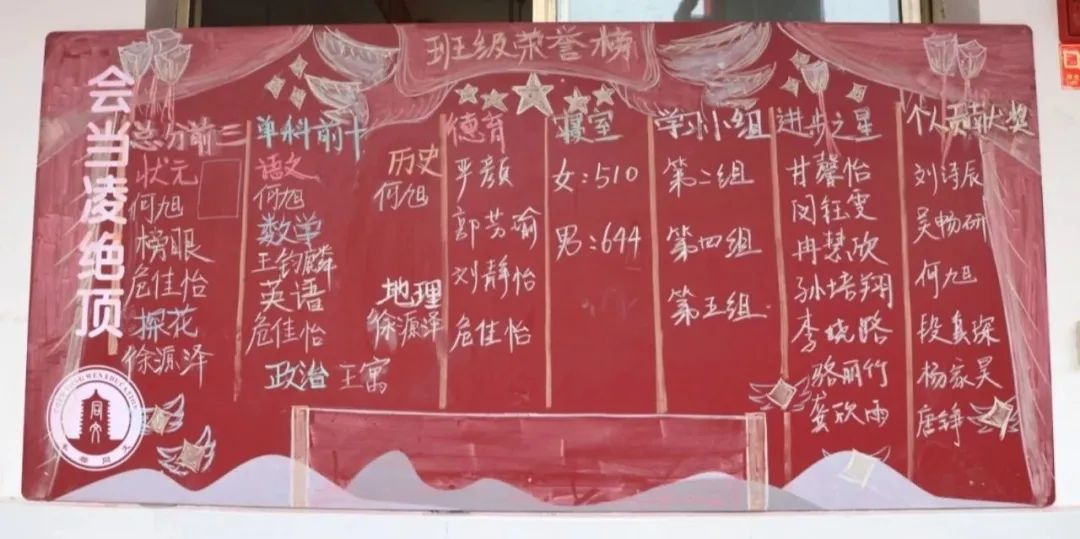 班级荣誉榜
会当凌绝顶
总分前三
状元
何旭
榜眼
危佳怡
探花
徐源泽
单科前十
语文
何旭
数学
王钧麟
英语
危佳怡
政治 王寓
历史
何旭
地理
徐源泽
德育
严颜
郭芳瑜
刘静怡
危佳怡
寝室
女:510
男:644
学习小组
第二组
第四组
第五组
进步之星
甘馨怡
闵钰雯
冉慧欣
孙培翔
李晓路
骆丽竹
龚欣雨
个人贡献奖
刘诗辰
吴畅研
何旭
段真琛
杨家昊
唐铮
同文